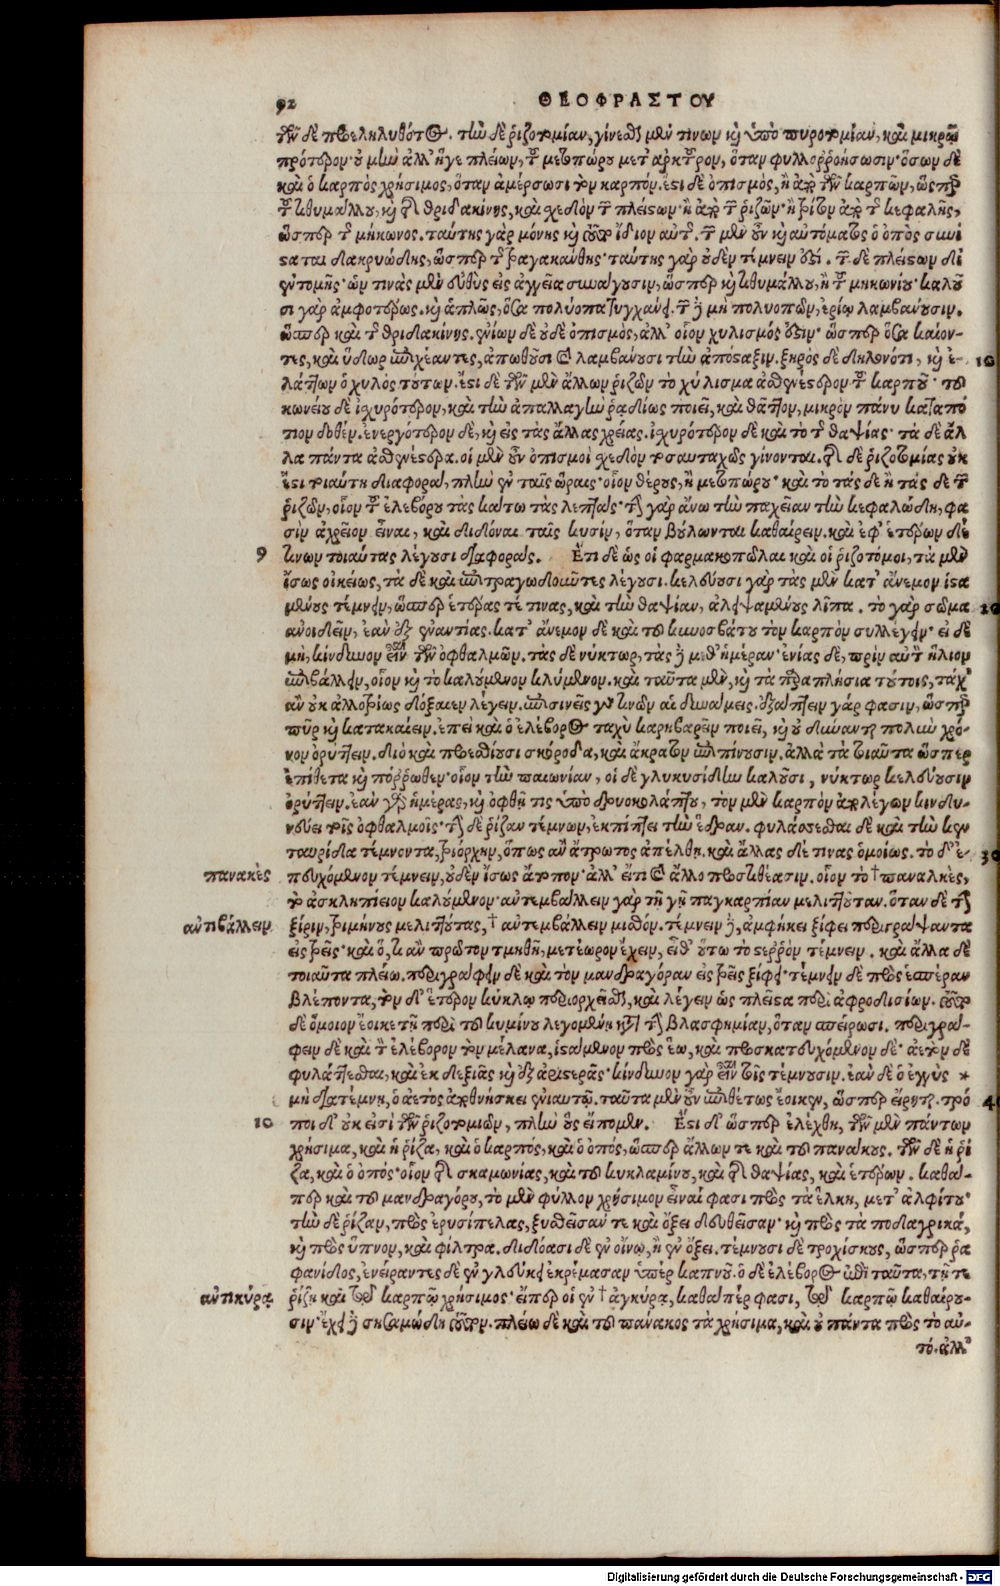 92 ΘΕΟΦΡΑΣΤΟΥ
τῶν δὲ προεληλυθότος. τὴν δὲ ῥιζοτομίαν, γίνεσθαι μὲν τινων καὶ ὑπὸ πυροτομίαν, καὶ μικρὸν
πρότερον· οὐ μὴν ἀλλ' ἥγε πλείων, τοῦ μετοπώρου μετ' ἀρκτοῦρον, ὅταν φυλλορροήσωσιν· ὅσων δὲ
καὶ ὁ καρπὸς χρήσιμος, ὅταν ἀμέρσωσι τὸν καρπόν. ἔστι δὲ ὀπισμὸς, ἢ ἀπὸ τῶν καρπῶν, ὥσπερ
τοῦ τιθυμάλλου, καὶ τῆς θριδακίνης, καὶ σχεδὸν τῶν πλείστων· ἢ ἀπὸ τῶν ῥιζῶν· ἢ τρίτον ἀπὸ τῆς κεφαλῆς,
ὥσπερ τῆς μήκωνος. ταύτης γὰρ μόνης καὶ τοῦτο ἴδιον αὐτῆς. τῶν μὲν οὖν καὶ αὐτόματος ὁ ὀπὸς συνί
σταται δακρυώδης, ὥσπερ τῆς τραγακάνθης· ταύτης γὰρ οὐδὲν τέμνειν ἐστί. τῶν δὲ πλείστων δι
ἐντομῆς· ὧν τινὰς μὲν εὐθὺς εἰς ἀγγεῖα συνάγουσιν, ὥσπερ καὶ τιθυμάλλου, ἢ τοῦ μηκωνίου· καλοῦ
σι γὰρ ἀμφοτέρως. καὶ ἁπλῶς, ὅσα πολύοπα τυγχάνει. τῶν δὲ μὴ πολυοπῶν, ἐρίῳ λαμβάνουσιν.
ὥσπερ καὶ τῆς θριδακίνης. ἐνίων δὲ οὐδὲ ὀπισμὸς, ἀλλ' οἷον χυλισμός ἐστιν· ὥσπερ ὅσα καίον-
τες, καὶ ὕδωρ ἐπιχέαντες, ἀπωθοῦσι καὶ λαμβάνουσι τὴν ἀπόσταξιν. ξηρὸς δὲ δηλονότι, καὶ ἐ- 10
λάττων ὁ χυλὸς τούτων. ἔστι δὲ τῶν μὲν ἄλλων ῥιζῶν τὸ χύλισμα ἀσθενέστερον τοῦ καρποῦ· τοῦ
κωνείου δὲ ἰσχυρότερον, καὶ τὴν ἀπαλλαγὴν ῥᾳδίως ποιεῖ, καὶ θᾶττον, μικρὸν πάνυ καταπό
τιον δοθέν. ἐνεργότερον δὲ, καὶ εἰς τὰς ἄλλας χρείας. ἰσχυρότερον δὲ καὶ τὸ τῆς θαψίας· τὰ δὲ ἄλ
λα πάντα ἀσθενέστερα. οἱ μὲν οὖν ὀπισμοὶ σχεδὸν τοσαυταχῶς γίνονται. τῆς δὲ ῥιζοτομίας οὐκ
ἔστι τοιαύτη διαφορὰ, πλὴν ἐν ταῖς ὥραις· οἷον θέρους, ἢ μετοπώρου· καὶ τὸ τάς δε ἢ τάς δε τῶν
ῥιζῶν, οἷον τοῦ ἐλεβόρου τὰς κάτω τὰς λεπτάς· τὴν γὰρ ἄνω τὴν παχεῖαν τὴν κεφαλώδη, φα
σὶν ἀχρεῖον εἶναι, καὶ διδόναι ταῖς κυσὶν, ὅταν βούλωνται καθαίρειν. καὶ ἐφ' ἑτέρων δέ
9 τινων τοιαύτας λέγουσι διαφοράς. Ἔτι δὲ ὡς οἱ φαρμακοπῶλαι καὶ οἱ ῥιζοτόμοι, τὰ μὲν
ἴσως οἰκείως, τὰ δὲ καὶ ἐπιτραγῳδοῦντες λέγουσι. κελεύουσι γὰρ τὰς μὲν κατ' ἄνεμον ἱστα
μένους τέμνειν, ὥσπερ ἑτέρας τέ τινας, καὶ τὴν θαψίαν, ἀλειψαμένους λίπα. τὸ γὰρ σῶμα 20
ἀνοιδεῖν, ἐὰν ἐξ ἐναντίας. κατ' ἄνεμον δὲ καὶ τοῦ κυνοσβάτου τὸν καρπὸν συλλέγειν· εἰ δὲ
μὴ, κίνδυνον εἶναι τῶν ὀφθαλμῶν. τὰς δὲ νύκτωρ, τὰς δὲ μεθ' ἡμέραν· ἐνίας δὲ, πρὶν αὐτῇ ἥλιον
ἐπιβάλλειν, οἷον καὶ τὸ καλούμενον κλύμενον. καὶ ταῦτα μὲν, καὶ τὰ παραπλήσια τούτοις, τάχ'
ἂν οὐκ ἀλλοτρίως δόξαιεν λέγειν. ἐπισινεῖς γάρ τινων αἱ δυνάμεις. ἐξάπτειν γάρ φασιν, ὥσπερ
πῦρ καὶ κατακαίειν. ἐπεὶ καὶ ὁ ἐλέβορος ταχὺ καρηβαρεῖν ποιεῖ, καὶ οὐ δύνανται πολὺν χρό-
νον ὀρύττειν. διὸ καὶ προεσθίουσι σκόροδα, καὶ ἄκρατον ἐπιπίνουσιν. ἀλλὰ τὰ τοιαῦτα ὥσπερ
ἐπίθετα καὶ πόρρωθεν· οἷον τὴν παιωνίαν, οἱ δὲ γλυκυσίδην καλοῦσι, νύκτωρ κελεύουσιν
ὀρύττειν. ἐὰν γὰρ ἡμέρας, καὶ ὀφθῇ τις ὑπὸ δρυοκολάπτου, τὸν μὲν καρπὸν ἀπολέγων κινδυ-
νεύει τοῖς ὀφθαλμοῖς· τὴν δὲ ῥίζαν τέμνων, ἐκπίπτει τὴν ἕδραν. φυλάσσεσθαι δὲ καὶ τὴν κεν
ταυρίδα τέμνοντα, τριόρχην, ὅπως ἂν ἄτρωτος ἀπέλθῃ. καὶ ἄλλας δέ τινας ὁμοίως. τὸ δ' ἐ- 30
πανακὲς πευχόμενον τέμνειν, οὐδὲν ἴσως ἄτοπον· ἀλλ' εἴ τι καὶ ἄλλο προστιθέασιν. οἷον τὸ † παναλκὲς,
τὸ ἀσκληπίειον καλούμενον· αὐτεμβάλλειν γὰρ τῇ γῇ παγκαρπίαν μελιττοῦταν. ὅταν δὲ τὴν
αὐτιβάλλειν ξίριν, τριμήνους μελιττούτας, † αὐτεμβάλλειν μισθόν. τέμνειν δὲ, ἀμφήκει ξίφει περιγράψαντα
εἰς τρεῖς· καὶ ὅ, τι ἂν πρῶτον τμηθῇ, μετέωρον ἔχειν, εἶθ' οὕτω τὸ ἕτερον τέμνειν. καὶ ἄλλα δὲ
τοιαῦτα πλείω. περιγράφειν δὲ καὶ τὸν μανδραγόραν εἰς τρεῖς ξίφει· τέμνειν δὲ πρὸς ἑσπέραν
βλέποντα, τὸν δ' ἕτερον κύκλῳ περιορχεῖσθαι, καὶ λέγειν ὡς πλεῖστα περὶ ἀφροδισίων. τοῦτο
δὲ ὅμοιον ἔοικε τῇ περὶ τοῦ κυμίνου λεγομένῃ κατὰ τὴν βλασφημίαν, ὅταν σπείρωσι. περιγρά-
φειν δὲ καὶ τὸν ἐλέβορον τὸν μέλανα, ἱστάμενον πρὸς ἕω, καὶ προσκατευχόμενον δέ· ἀετὸν δὲ
φυλάττεσθαι, καὶ ἐκ δεξιᾶς καὶ ἐξ ἀριστερᾶς· κίνδυνον γὰρ εἶναι τοῖς τέμνουσιν. ἐὰν δὲ ὁ ἐγγὺς *
μὴ διατέμνῃ, ὁ ἀετὸς ἀποθνήσκει ἐνιαυτῷ. ταῦτα μὲν οὖν ἐπιθέτως ἔοικεν, ὥσπερ εἴρηται. τρό 40
10 ποι δ' οὐκ εἰσὶ τῶν ῥιζοτομιῶν, πλὴν οὓς εἴπομεν. Ἔστι δ' ὥσπερ ἐλέχθη, τῶν μὲν πάντων
χρήσιμα, καὶ ἡ ῥίζα, καὶ ὁ καρπὸς, καὶ ὁ ὀπὸς, ὥσπερ ἄλλων τε καὶ τοῦ πανάκους. τῶν δὲ ἡ ῥί
ζα, καὶ ὁ ὀπός· οἷον τῆς σκαμωνίας, καὶ τοῦ κυκλαμίνου, καὶ τῆς θαψίας, καὶ ἑτέρων. καθά-
περ καὶ τοῦ μανδραγόρου, τὸ μὲν φύλλον χρήσιμον εἶναί φασι πρὸς τὰ ἕλκη, μετ' ἀλφίτου·
τὴν δὲ ῥίζαν, πρὸς ἐρυσίπελας, ξυσθεῖσάν τε καὶ ὄξει δευθεῖσαν· καὶ πρὸς τὰ ποδαγρικὰ,
καὶ πρὸς ὕπνον, καὶ φίλτρα. διδόασι δὲ ἐν οἴνῳ, ἢ ἐν ὄξει. τέμνουσι δὲ τροχίσκους, ὥσπερ ῥα
φανῖδος, ἐνείραντες δὲ ἐν γλεύκει ἐκρέμασαν ὑπὲρ καπνοῦ. ὁ δὲ ἐλέβορος ἐπὶ ταῦτα, τῇ τε
αὐτικύρᾳ ῥίζῃ καὶ τῷ καρπῷ χρήσιμος· εἴπερ οἱ ἐν † ἀγκύρᾳ, καθάπέρ φασι, τῷ καρπῷ καθαίρου-
σιν· ἔχει δὲ σησαμώδη τοῦτον. πλείω δὲ καὶ τοῦ πάνακος τὰ χρήσιμα, καὶ οὐ πάντα πρὸς τὸ αὐ-
τό. ἀλλ'
Digitalisierung gefördert durch die Deutsche Forschungsgemeinschaft - DFG